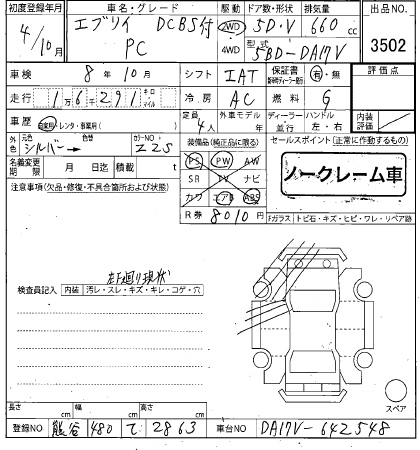 初度登録年月 車名・グレード 駆動 ドア数・形状 排気量 出品NO.
4/10月 エブリイ DCBS付 2WD 5D・V 660cc 3502
PC 4WD 型式 5BD-DA17V
車検 8年10月 シフト IAT 保証書 有・無 評価点
走行 1万6千291 キロ マイル 冷房 AC 燃料 G
車歴 自家用・レンタ・事業用( ) 定員 4人 外車モデル 年 ディーラー・並行 ハンドル 左・右 内装評価
外色 シルバー→ 色替 カラーNO. Z2S 装備品(純正品に限る) セールスポイント(正常に作動するもの)
名義変更期限 月 日迄 積載 t PS PW AW
注意事項(欠品・修復・不具合箇所および状態) SR TV ナビ ノークレーム車
カワ エアB ABS
R券 8010円 Fガラス トビ石・キズ・ヒビ・ワレ・リペア跡
左下廻り現状
検査員記入 内装 汚レ・スレ・キズ・キレ・コゲ・穴
スペア
長さ cm 幅 cm 高さ cm
登録NO 熊谷 480 て 2863 車台NO DA17V-642548